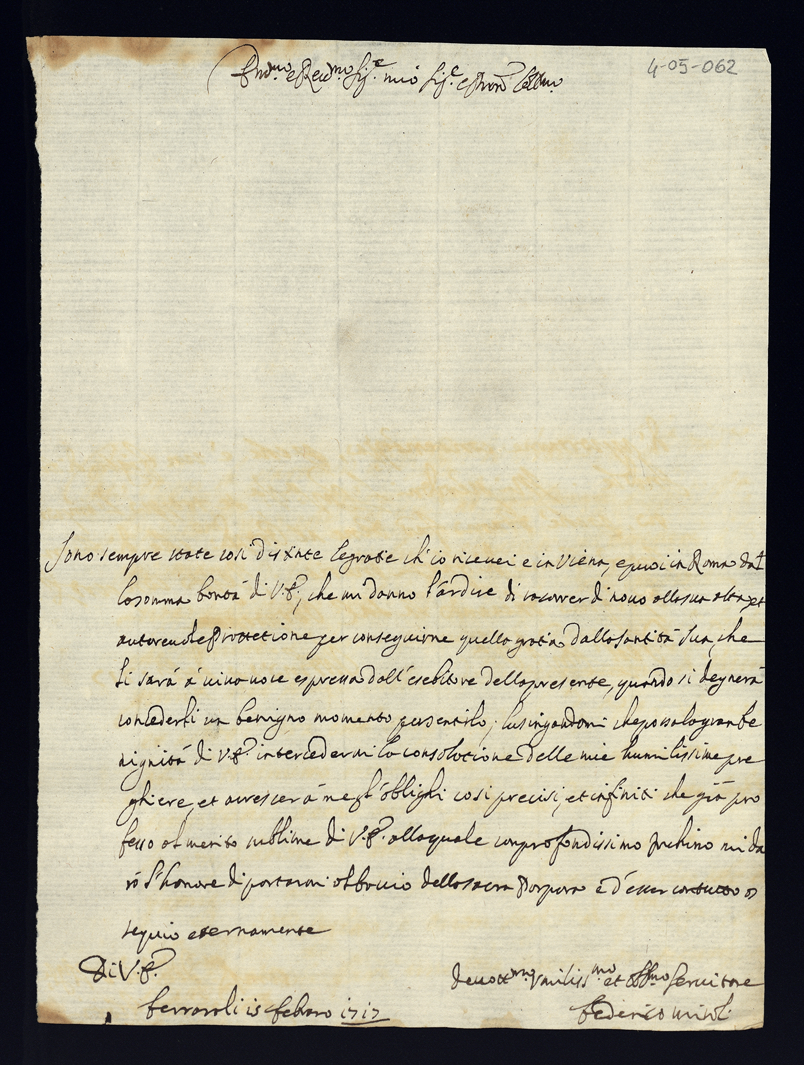 4-05-062
Em.mo e Rev.mo Sig.r mio Sig.r e Pron. Coll.mo
Sono sempre state così distinte le gratie ch'io riceuei e in Viena, e puoi in Roma dal
la somma bontà di V.E., che mi danno l'ardire di ricorrer di nouo alla sua alta et
autoreuole Prottetione per conseguirne quella gratia dalla Santità Sua, che
li sarà à viua uoce espressa dall'esebitore della presente, quando si degnerà
concederli un benigno momento per sentilo, lusingandomi che possa la gran be
nignità di V.E. intercedermi la consolatione delle mie humilissime pre
ghiere, et accrescerà meg'l'oblighi così precisi, et infiniti che già pro
fesso al merito sublime di V.E. alla quale con profondissimo inchino mi da
rò l'honore di portarmi al baccio della sacra Porpora e d'esser con tutto os
sequio eternamente
Di V.E.
deuott.mo Vmiliss.mo et Obb.mo Seruitore
15 febraro 1717
Federico